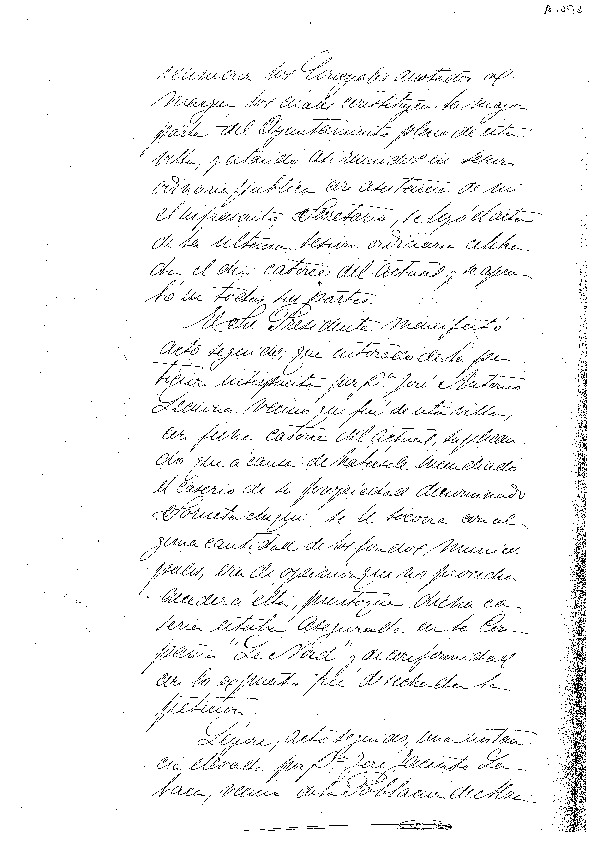 reunieron los Concejales anotados al
margen los cuales constituyen la mayor
parte del Ayuntamiento pleno de esta
villa, y estando así reunidos en sesión
ordinaria pública con asistencia de mi
el infrascrito Secretario, se leyó el acta
de la última sesión ordinaria celebra-
da el día catorce del actual y se apro-
bó en todas sus partes.
El Sr. Presidente manifestó
acto seguido, que enterado de la pe-
tición interpuesta por Dn. José Antonio
vecino que fué de esta villa,
con fecha catorce del actual, suplican-
do que a causa de habérsele incendiado
el caserío de su propiedad denominado
se le socorra con al-
guna cantidad de los fondos munici-
pales, era de opinión que no procedía
acceder a ello, puesto que dicho ca-
serío estaba asegurado en la Com-
pañía "La Nord" y de conformidad
con lo expuesto fué desechada la
petición.
Leyóse, acto seguido, una instan-
cia elevada por Dn. José Jacinto
vecino de la Población de